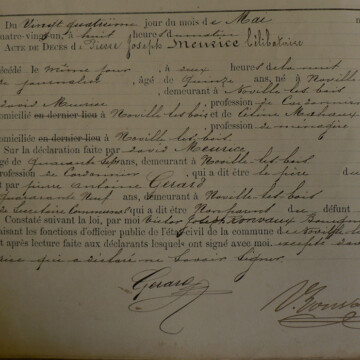 Du Vingt quatrième jour du mois de Mai
quatre-vingt un à huit heures du matin
ACTE DE DÉCÈS de Pierre Joseph Meurice Célibataire
décédé le même jour, à deux heures de la nuit
de journalier, âgé de quinze ans, né à Noville
, demeurant à Noville les bois
David Meurice, profession de Cordonnier
domicilié en dernier lieu à Noville les bois et de Céline
, profession de ménagère
domiciliée en dernier lieu à Noville les bois
Sur la déclaration faite par David Meurice
âgé de quarante sept ans, demeurant à Noville les bois
profession de Cordonnier, qui a dit être le père du
et par Pierre Antoine Gerard
quarante neuf ans, demeurant à Noville les bois
de Secrétaire Communal qui a dit être Non parent du défunt
Constaté suivant la loi, par moi Victor
faisant les fonctions d'officier public de l'état-civil de la commune de Noville les
et après lecture faite aux déclarants lesquels ont signé avec moi, excepté David
qui a déclaré ne savoir signer
Gerard